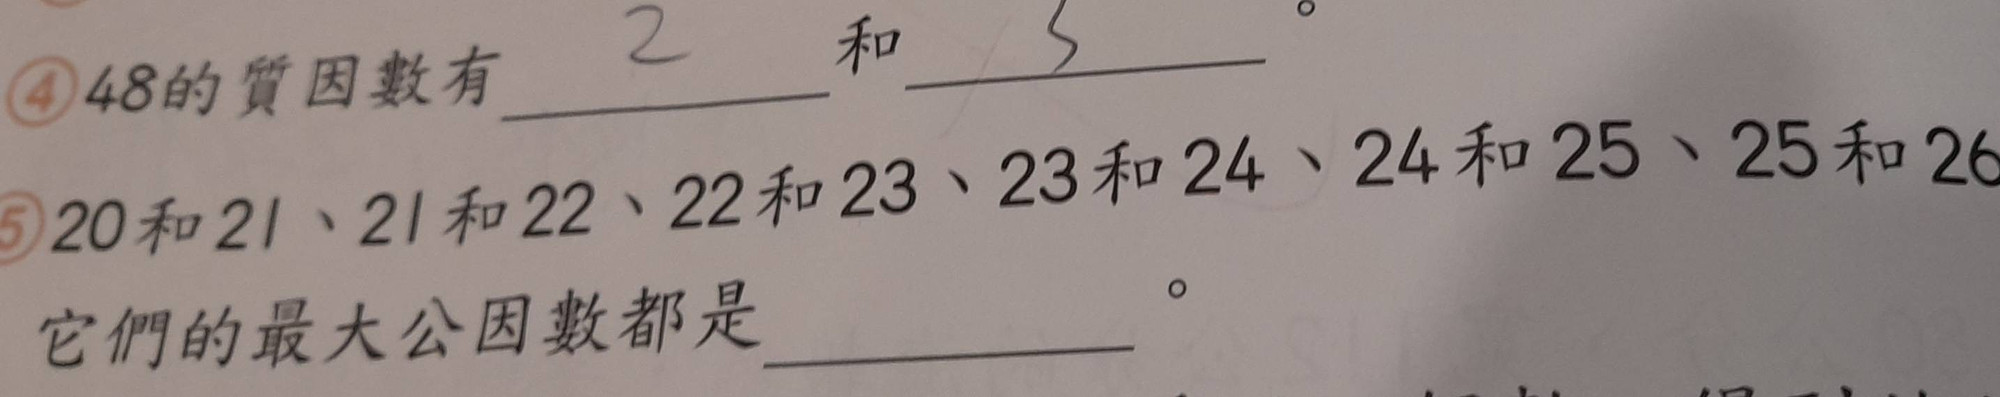 ④48的質因數有 2 和 3 。
⑤20和21、21和22、22和23、23和24、24和25、25和26
它們的最大公因數都是 。